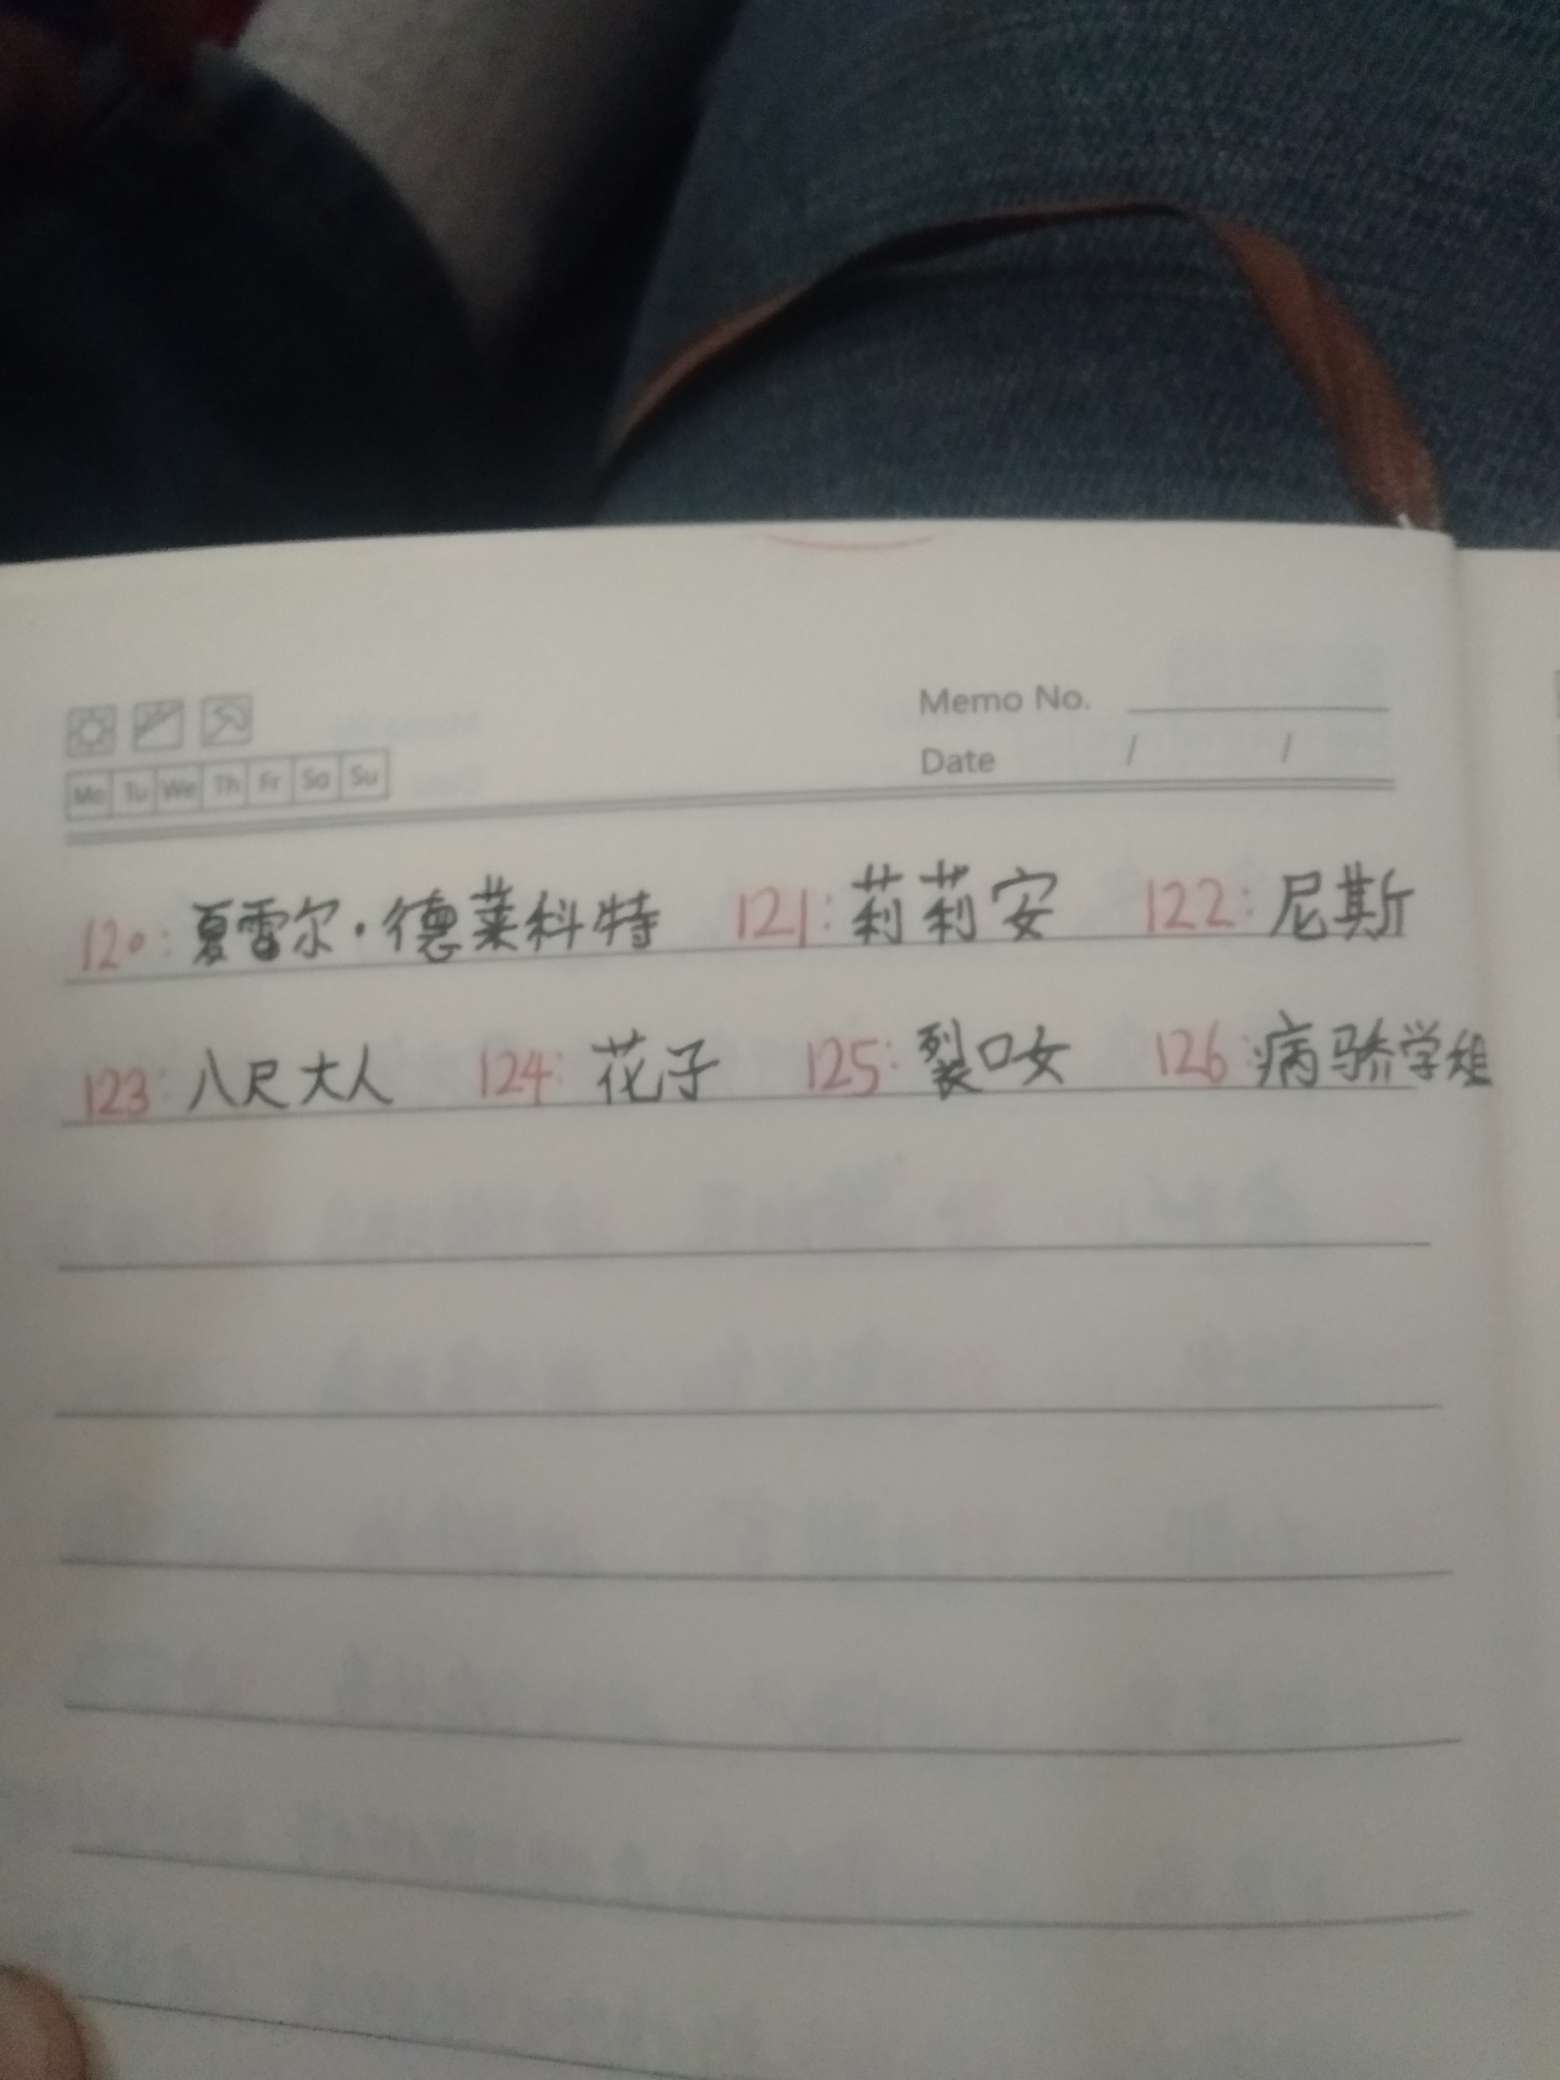 Memo No.
Mo Tu We Th Fr Sa Su
Date / /
120: 夏雷尔·德莱科特 121: 莉莉安 122: 尼斯
123: 八尺大人 124: 花子 125: 裂口女 126: 病骄学姐